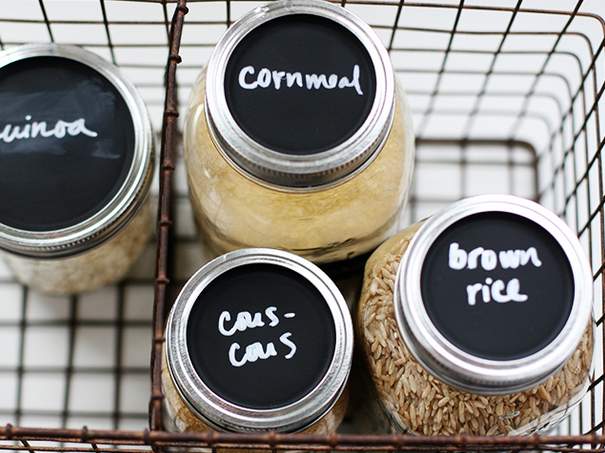 cornmeal
uinoa
cous-
cous
brown
rice